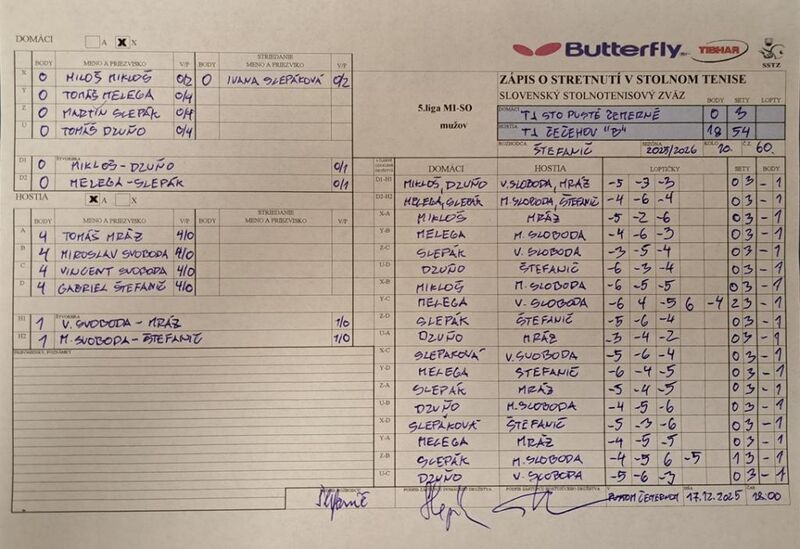 DOMÁCI A X X
BODY MENO A PRIEZVISKO V/P BODY STRIEDANIE MENO A PRIEZVISKO V/P
X 0 MILOŠ MIKLOŠ 0/2 0 IVANA SLEPÁKOVÁ 0/2
Y 0 TOMÁŠ MELEGA 0/4
Z 0 MARTIN SLEPÁK 0/4
U 0 TOMÁŠ DZUŇO 0/4
ŠTVORHRA
D1 0 MIKLOŠ - DZUŇO 0/1
D2 0 MELEGA - SLEPÁK 0/1
HOSTIA X A X
BODY MENO A PRIEZVISKO V/P BODY STRIEDANIE MENO A PRIEZVISKO V/P
A 4 TOMÁŠ MRÁZ 4/0
B 4 MIROSLAV SVOBODA 4/0
C 4 VINCENT SVOBODA 4/0
D 4 GABRIEL ŠTEFANIČ 4/0
ŠTVORHRA
H1 1 V. SVOBODA - MRÁZ 1/0
H2 1 M. SVOBODA - ŠTEFANIČ 1/0
PRIPOMIENKY, POZNÁMKY
Butterfly TIBHAR SSTZ
ZÁPIS O STRETNUTÍ V STOLNOM TENISE
SLOVENSKÝ STOLNOTENISOVÝ ZVÄZ
5.liga MI-SO
mužov
DOMÁCI BODY SETY LOPTY
TJ STO PUSTÉ ČEMERNÉ 0 3
HOSTIA
TJ ČEČEHOV "B" 18 54
ROZHODCA ŠTEFANIČ SEZÓNA 2025/2026 KOLO 10. Č.Z. 60.
DOMÁCI HOSTIA LOPTIČKY SETY BODY
D1-H1 MIKLOŠ, DZUŇO V. SLOBODA, MRÁZ -5 -3 -3 0 3 0 - 1
D2-H2 MELEGA, SLEPÁK M. SLOBODA, ŠTEFANIČ -4 -6 -4 0 3 - 1
X-A MIKLOŠ MRÁZ -5 -2 -6 0 3 - 1
Y-B MELEGA M. SLOBODA -4 -6 -3 0 3 - 1
Z-C SLEPÁK V. SLOBODA -3 -5 -4 0 3 - 1
U-D DZUŇO ŠTEFANIČ -6 -3 -4 0 3 - 1
X-B MIKLOŠ M. SLOBODA -6 -5 -5 0 3 - 1
Y-C MELEGA V. SLOBODA -6 4 -5 6 -4 2 3 - 1
Z-D SLEPÁK ŠTEFANIČ -5 -6 -4 0 3 - 1
U-A DZUŇO MRÁZ -3 -4 -2 0 3 - 1
X-C SLEPÁKOVÁ V. SVOBODA -5 -6 -4 0 3 - 1
Y-D MELEGA ŠTEFANIČ -6 -4 -5 0 3 - 1
Z-A SLEPÁK MRÁZ -5 -4 -5 0 3 - 1
U-B DZUŇO M. SLOBODA -4 -5 -6 0 3 - 1
X-D SLEPÁKOVÁ ŠTEFANIČ -5 -3 -6 0 3 - 1
Y-A MELEGA MRÁZ -4 -5 -5 0 3 - 1
Z-B SLEPÁK M. SLOBODA -4 -5 6 -5 1 3 - 1
U-C DZUŇO V. SLOBODA -5 -6 -3 0 3 - 1
PODPIS ROZHODCU PODPIS ZÁSTUPCU DOMÁCEHO DRUŽSTVA PODPIS ZÁSTUPCU HOSŤUJÚCEHO DRUŽSTVA V DŇA ČAS
Štefanič 17.12.2025 18:00